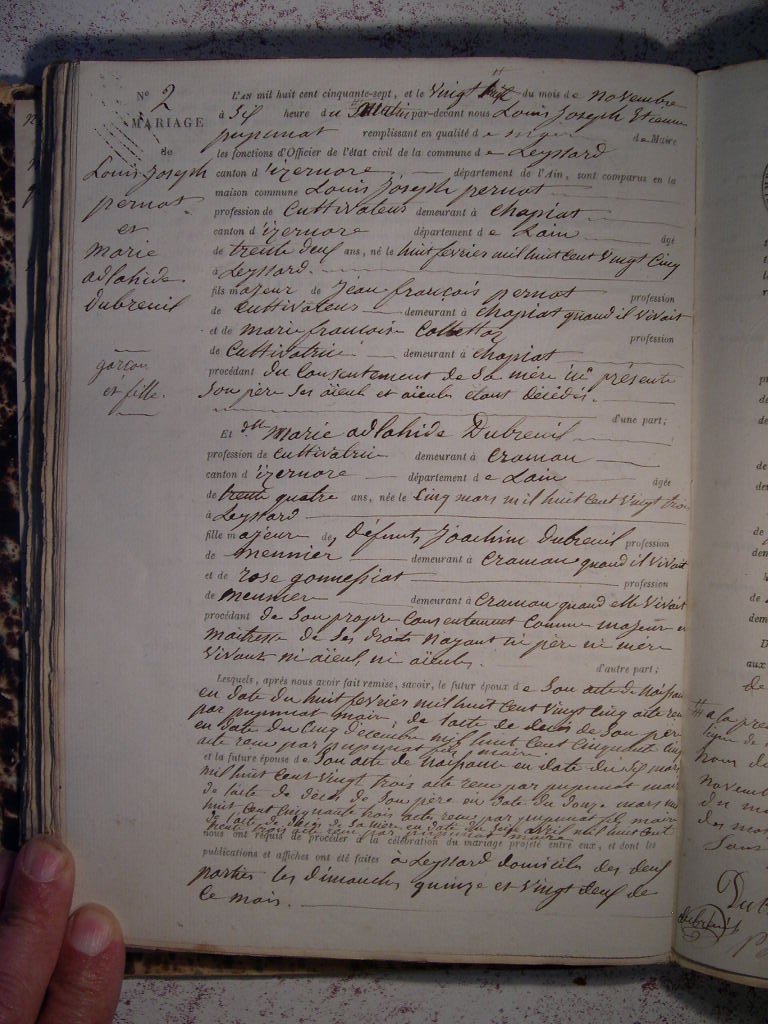 N° 2
MARIAGE
de
Louis Joseph
pernot
et
marie
adlahide
Dubreuil
garçon
et fille.
L'AN mil huit cent cinquante-sept, et le Vingt du mois de novembre
à Six heure du Matin par-devant nous Louis Joseph Etienne
pupunat remplissant en qualité de de Maire
les fonctions d'Officier de l'état civil de la commune de Leyssard
canton d'izernore département de l'Ain, sont comparus en la
maison commune Louis Joseph pernot
profession de Cultivateur demeurant à Chapiat
canton d'izernore département de Lain âgé
de trente deux ans, né le huit fevrier mil huit Cent Vingt Cinq
à Leyssard.
fils majeur de Jean françois pernot profession
de Cultivateur demeurant à Chapiat quand il vivait
et de marie francoise profession
de Cultivatrice demeurant à Chapiat
procédant du Consentement de Sa mère ici présente
Son père Ses aïeuls et aïeules étant Décédés.
d'une part;
Et dlle Marie adlahide Dubreuil
profession de Cultivatrice demeurant à Cramau
canton d'izernore département de Lain âgée
de trente quatre ans, née le Cinq mars mil huit Cent Vingt trois
à Leyssard
fille majeure de Défunts Joachim Dubreuil profession
de meunier demeurant à Cramau quand il Vivait
et de rose gonnessiat profession
de meunier demeurant à Cramau quand elle Vivait
procédant de Son propre Consentement Comme majeure et
maitresse de Ses droits nayant ni père ni mère
Vivant ni aïeul, ni aïeules.
d'autre part;
Lesquels, après nous avoir fait remise, savoir, le futur époux de Son acte de naissance
en date du huit fevrier mil huit Cent Vingt Cinq acte recu
par pupunat maire, de lacte de deces de Son père
en date du Cinq décembre mil huit Cent Cinquante Cinq
acte recu par pupunat maire;
et la future épouse de Son acte de naissance en date du Six mars
mil huit Cent Vingt trois acte recu par pupunat maire
de lacte de déces de Son père en date du Douze mars mil
huit Cent Cinquante trois acte recu par pupunat maire
de lacte de déces de Sa mère en date du avril mil huit Cent
trente trois acte recu par pupunat maire
nous ont requis de procéder à la célébration du mariage projeté entre eux, et dont les
publications et affiches ont été faites à Leyssard domicile des deux
parties les dimanches quinze et Vingt deux de
Ce mois.